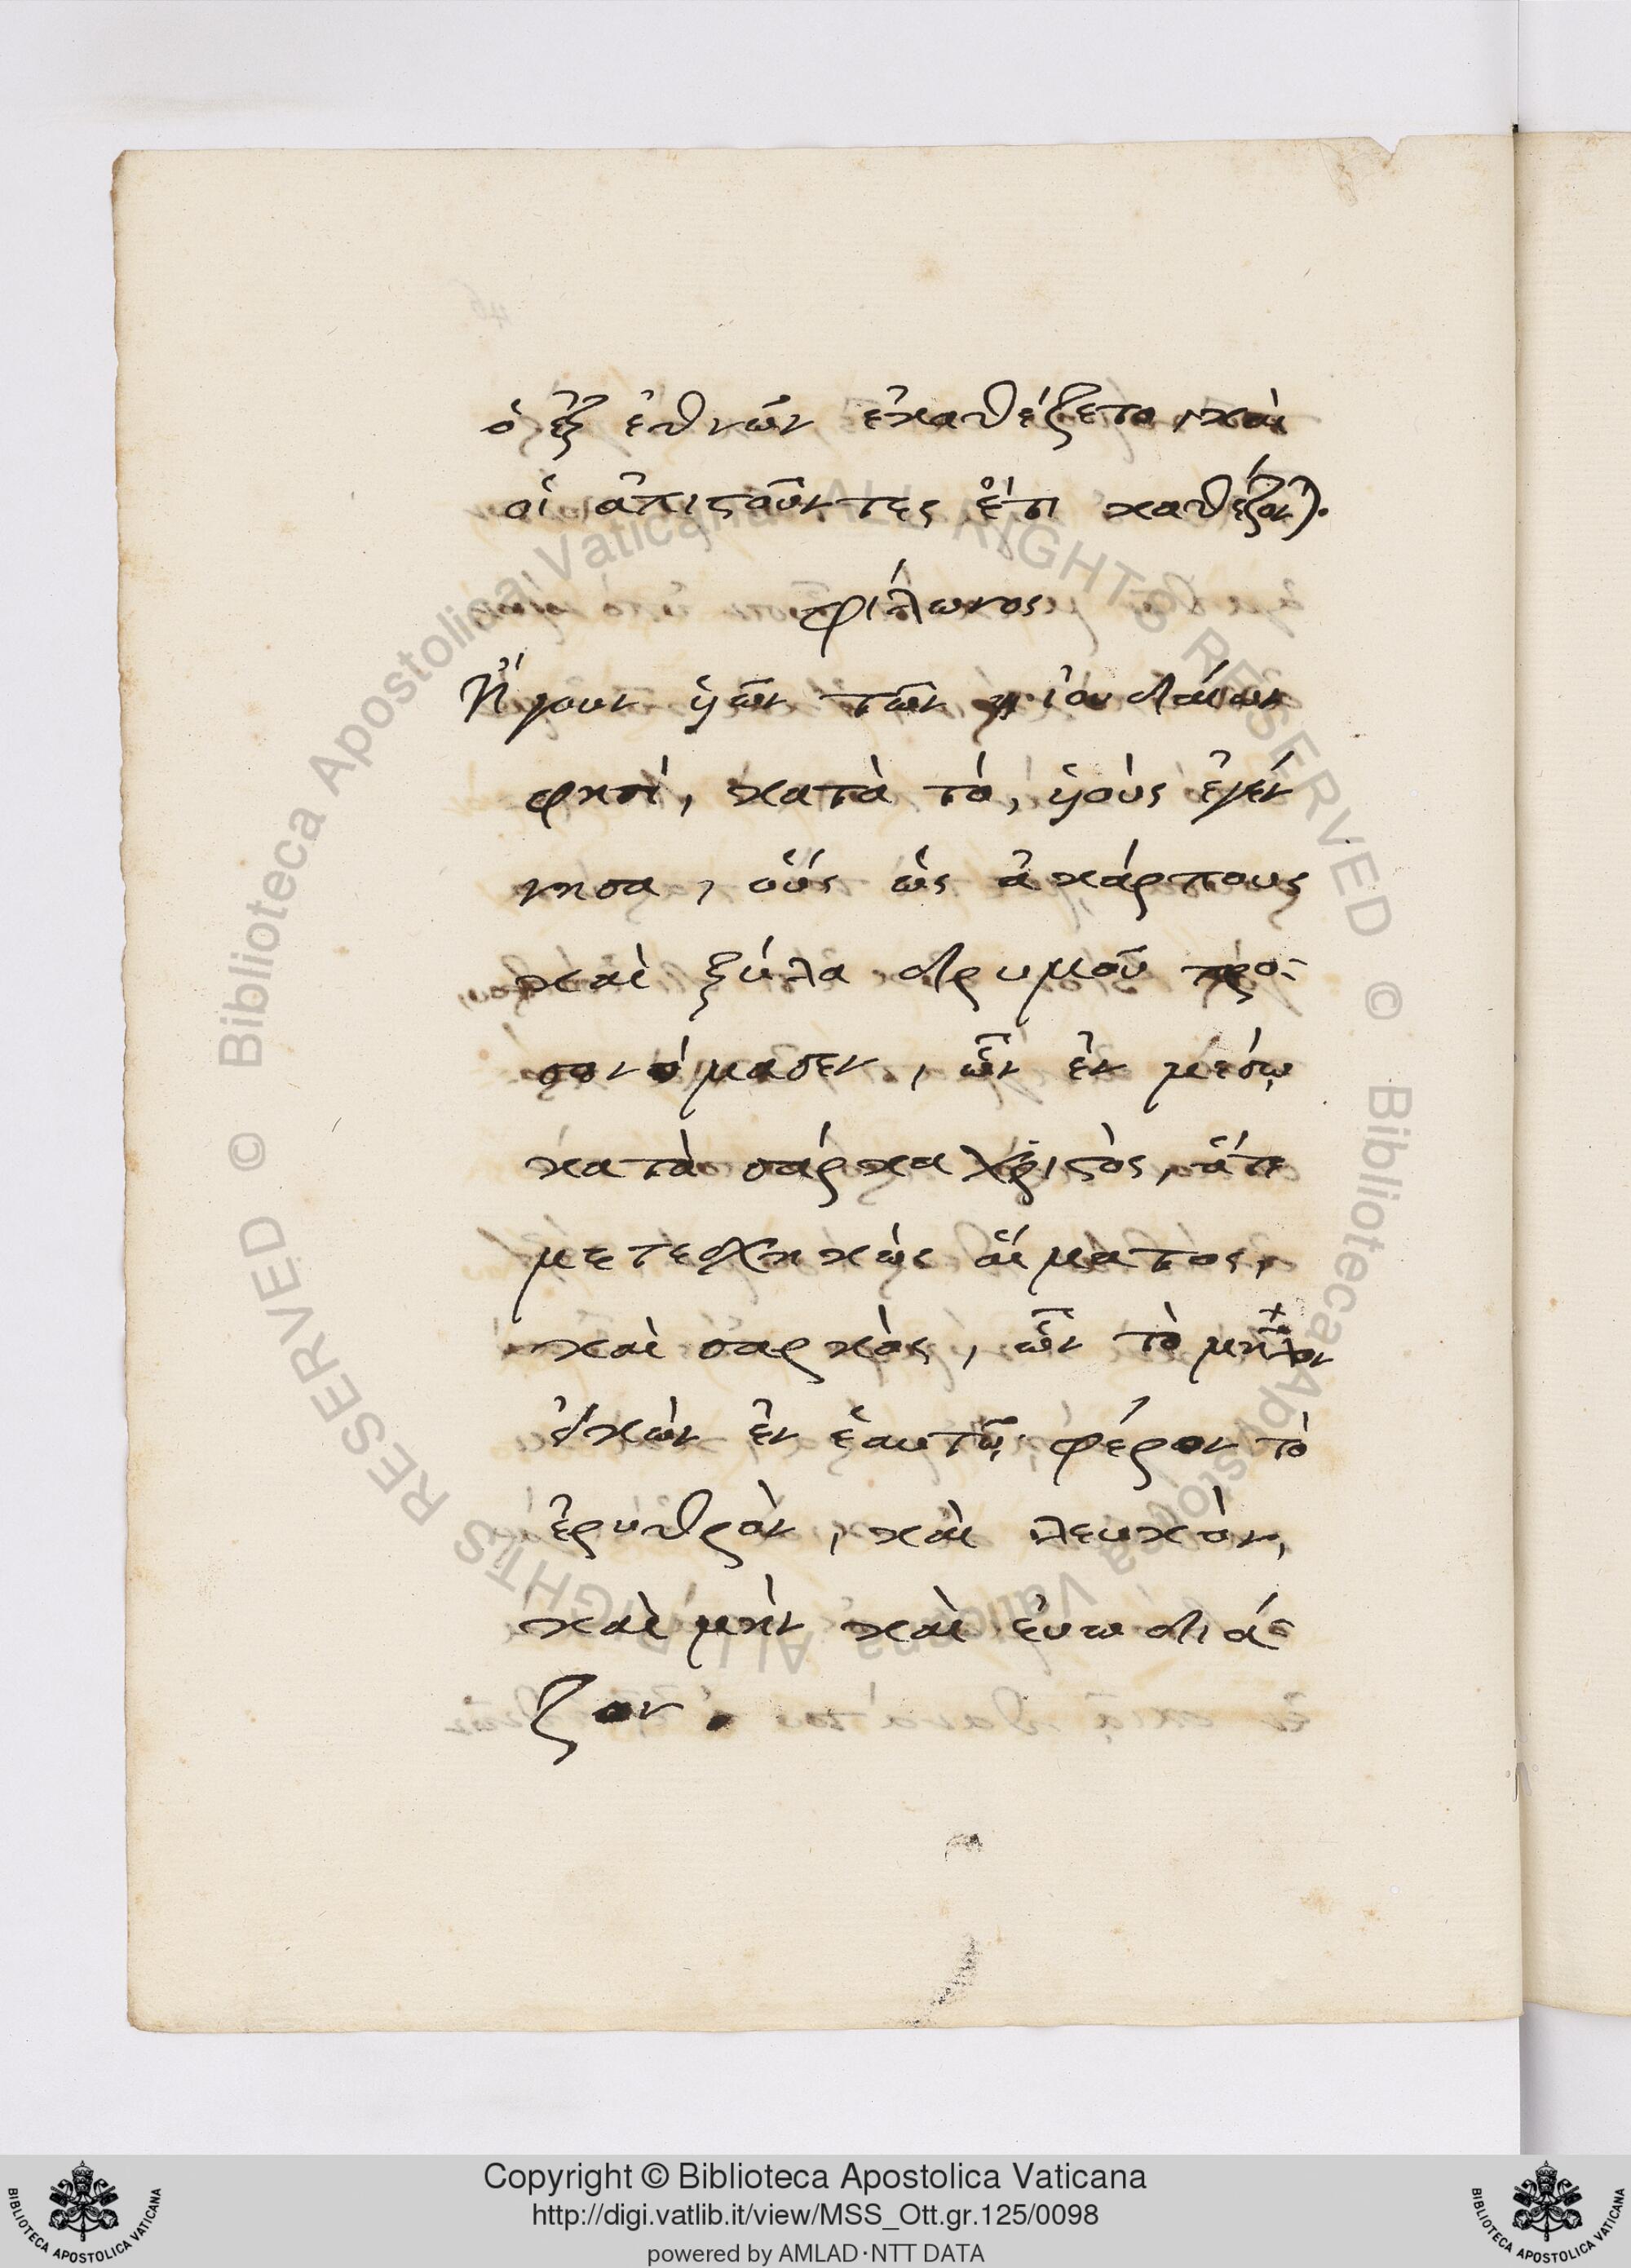 ὁ ἐξ ἐθνῶν ἐκαθέζετο, καὶ
οἱ ἀπιστοῦντες ἔτι καθέζον).
φίλωνος
Ἤγουν ὑῶν τῶν ἰουδαίων
φησὶ, κατὰ τὸ, ὑοὺς ἐγέν
νησα, οὓς ὡς ἀκάρπους
καὶ ξύλα δρυμοῦ προ-
σονόμασεν, ὧν ἐν μέσῳ
κατὰ σάρκα χριστὸς, ἅτε
μετεσχηκὼς αἵματος,
καὶ σαρκὸς, ὧν τὸ μῆλον
ἐικὼν ἐν ἑαυτῷ φέρον τὸ
ἐρυθρὸν, καὶ λευκὸν,
καὶ μὴν καὶ ἐυωδιά-
ζον.
Copyright © Biblioteca Apostolica Vaticana
http://digi.vatlib.it/view/MSS_Ott.gr.125/0098
powered by AMLAD·NTT DATA
BIBLIOTECA APOSTOLICA VATICANA
BIBLIOTECA APOSTOLICA VATICANA
© Biblioteca Apostolica Vaticana ALL RIGHTS RESERVED
© Biblioteca Apostolica Vaticana ALL RIGHTS RESERVED